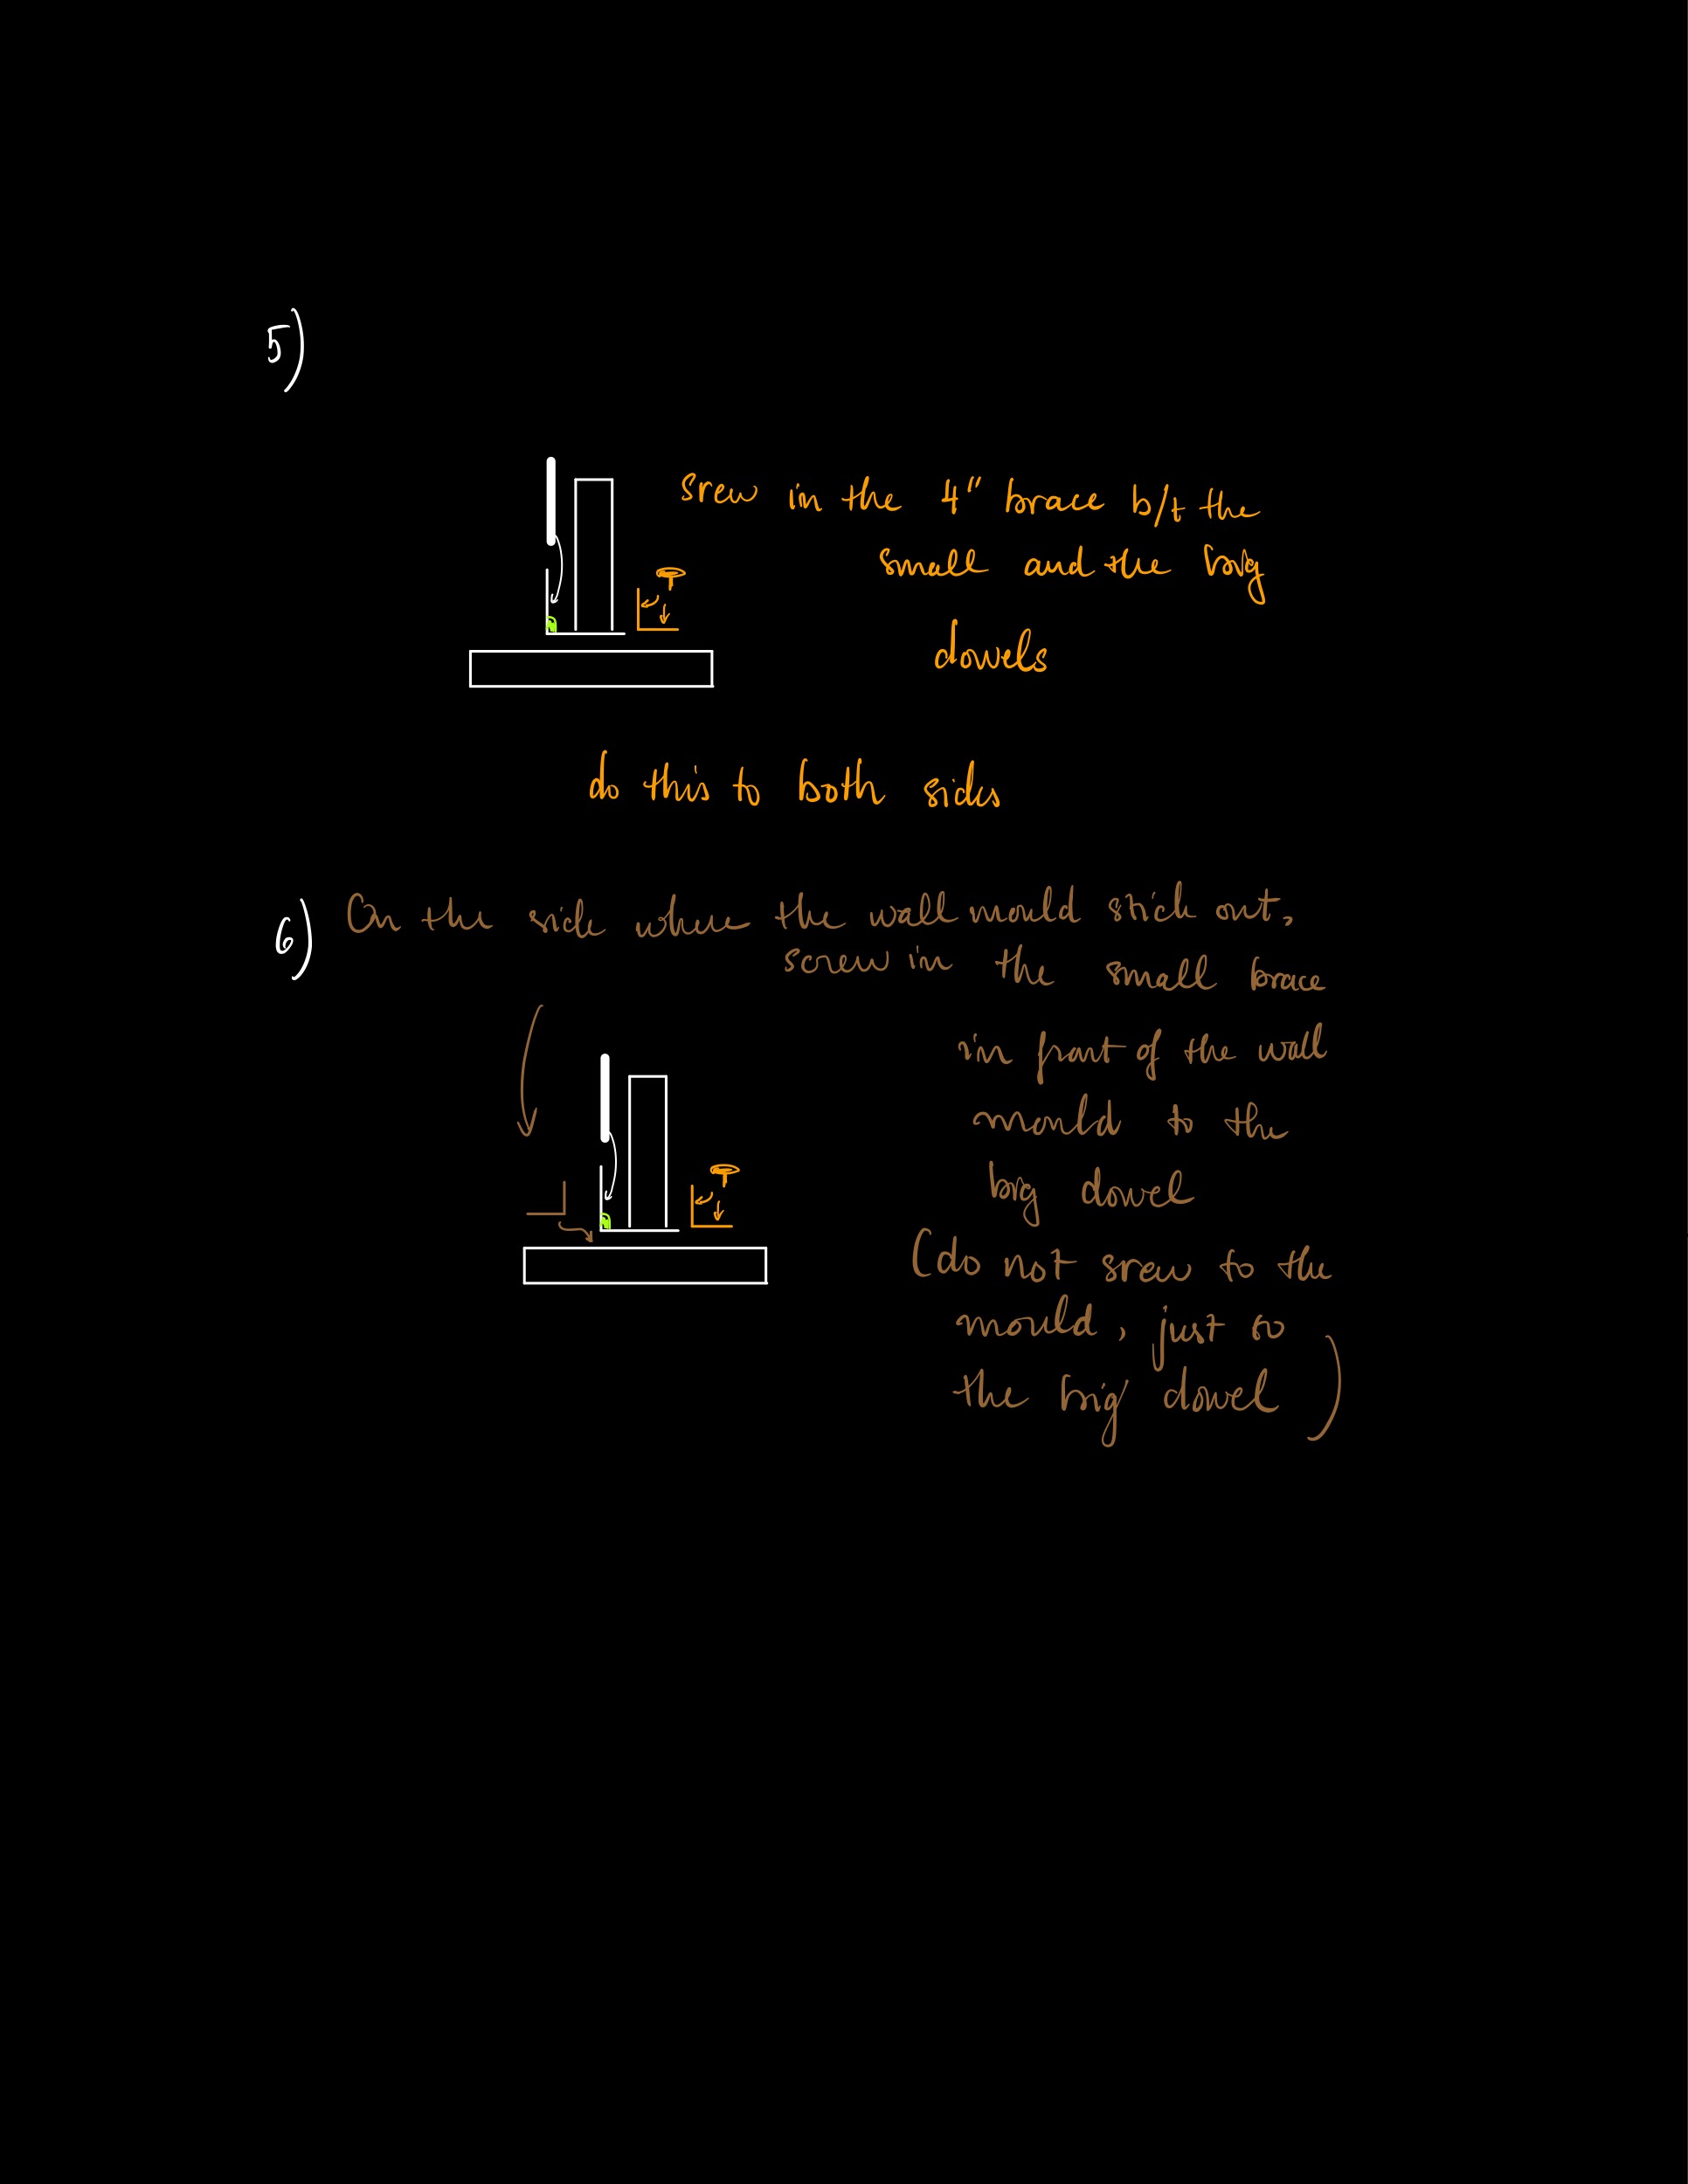 5)
srew in the 4" brace b/t the
small and the big
dowels
do this to both sides
6) On the side where the wall mould stick out,
screw in the small brace
in front of the wall
mould to the
big dowel
(do not srew to the
mould, just to
the big dowel)